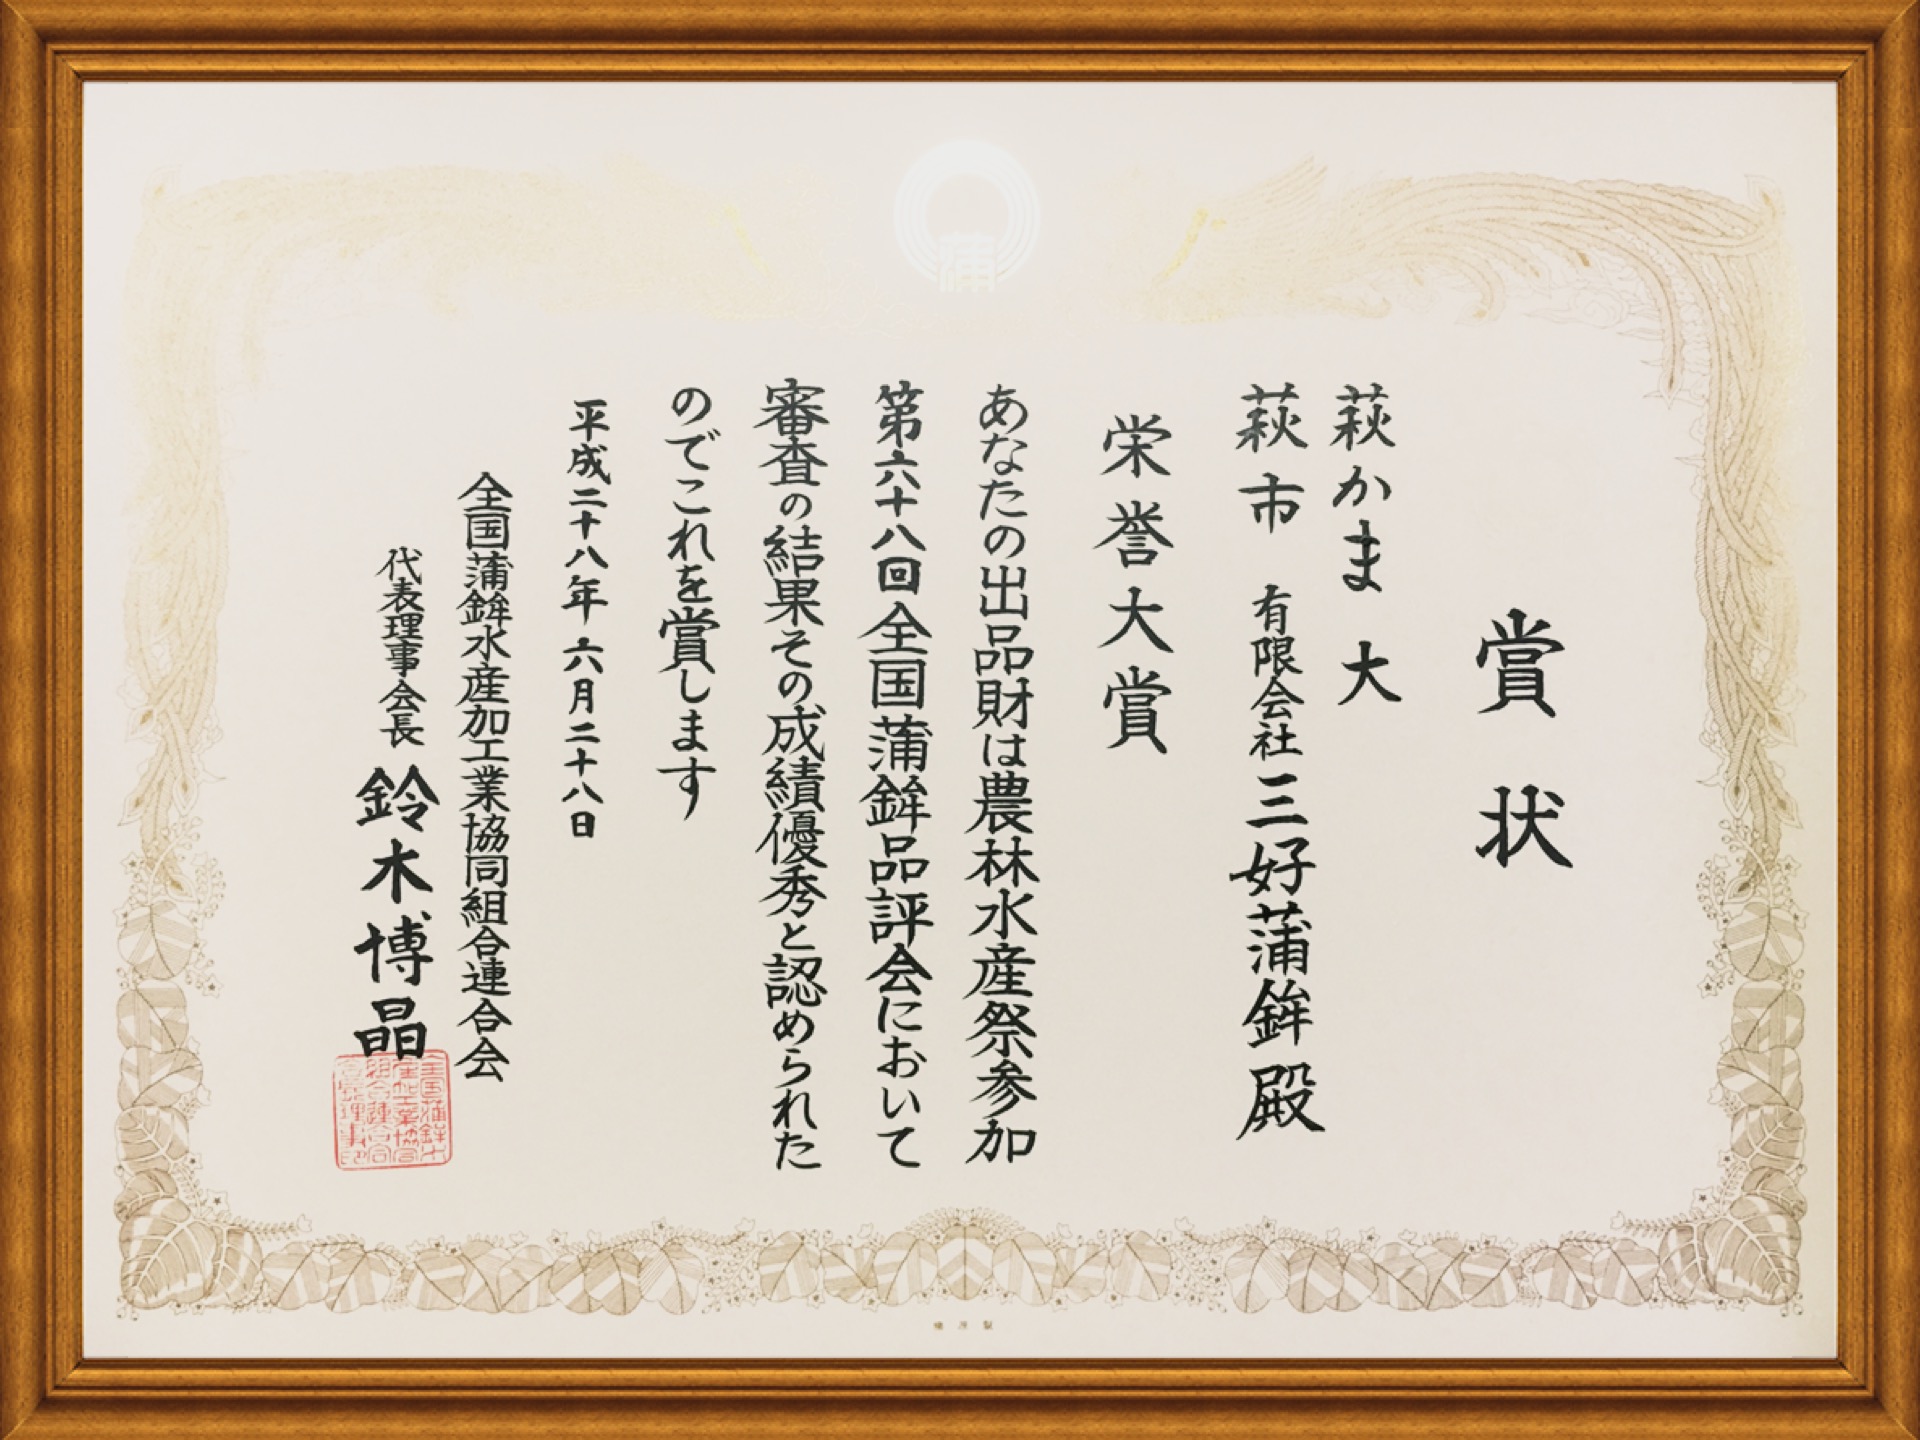 賞状
萩かま 大
萩市 有限会社 三好蒲鉾 殿
栄誉大賞
あなたの出品財は農林水産祭参加
第六十八回全国蒲鉾品評会において
審査の結果その成績優秀と認められた
のでこれを賞します
平成二十八年六月二十八日
全国蒲鉾水産加工業協同組合連合会
代表理事会長 鈴木博晶
蒲